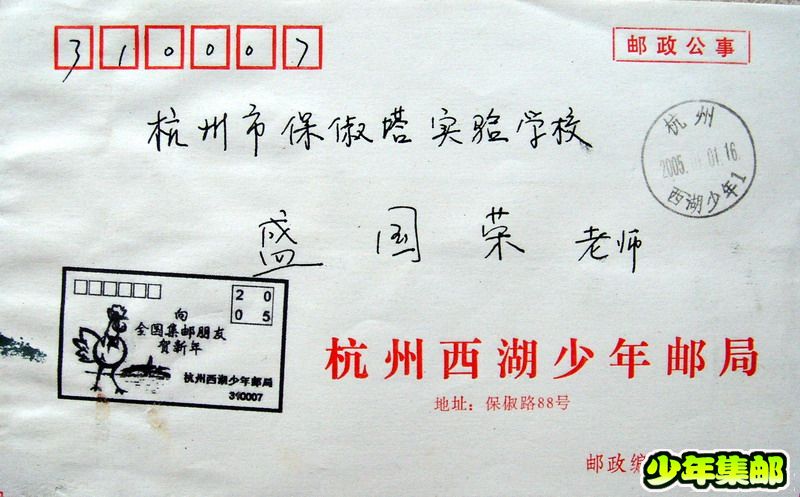 310007
邮政公事
杭州市保俶塔实验学校
杭州
2005.01.16
西湖少年1
盛国荣 老师
20
05
向
全国集邮朋友
贺新年
杭州西湖少年邮局
310007
杭州西湖少年邮局
地址：保俶路88号
邮政编
少年集邮